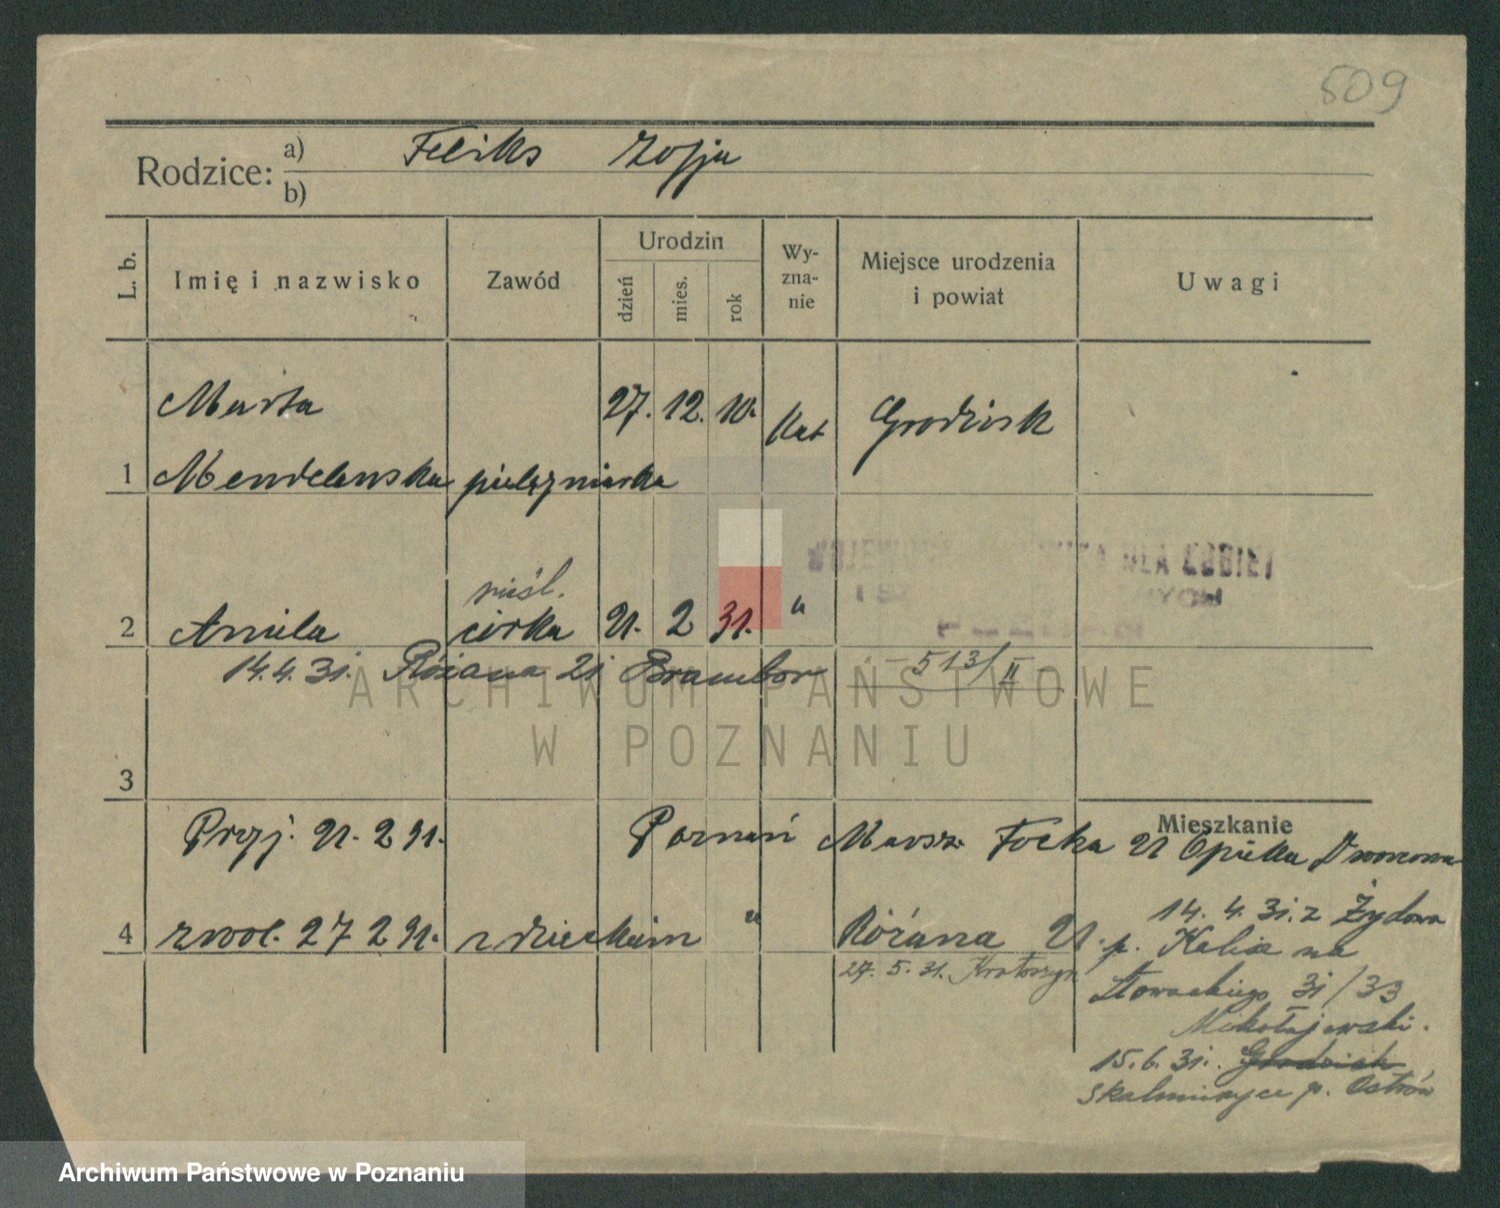 509
Rodzice: a) Feliks Zofja
b)
L. b.
Imię i nazwisko
Zawód
Urodzin
dzień
mies.
rok
Wy-
zna-
nie
Miejsce urodzenia
i powiat
Uwagi
Marta 27. 12. 10. Kat Grodzisk
1 Mendelewska pielęgniarka
nieśl.
2 Aniela córka 21. 2 31. "
DLA KOBIET
14. 4. 31. Różana 21 Brambor 513/II
ARCHIWUM PAŃSTWOWE
W POZNANIU
3
Mieszkanie
Przyj. 21. 2 31. Poznań Marsz. Focha 21 Opieka
4 zwol. 27 2 31. z dzieckiem " Różana 21.
14. 4. 31. z Żydowa
p. Kalisz na
27. 5. 31. Krotoszyn
Słowackiego 31/33
Mikołajewski.
15. 6. 31. Grodzisk
Skalmierzyce p. Ostrów
Archiwum Państwowe w Poznaniu